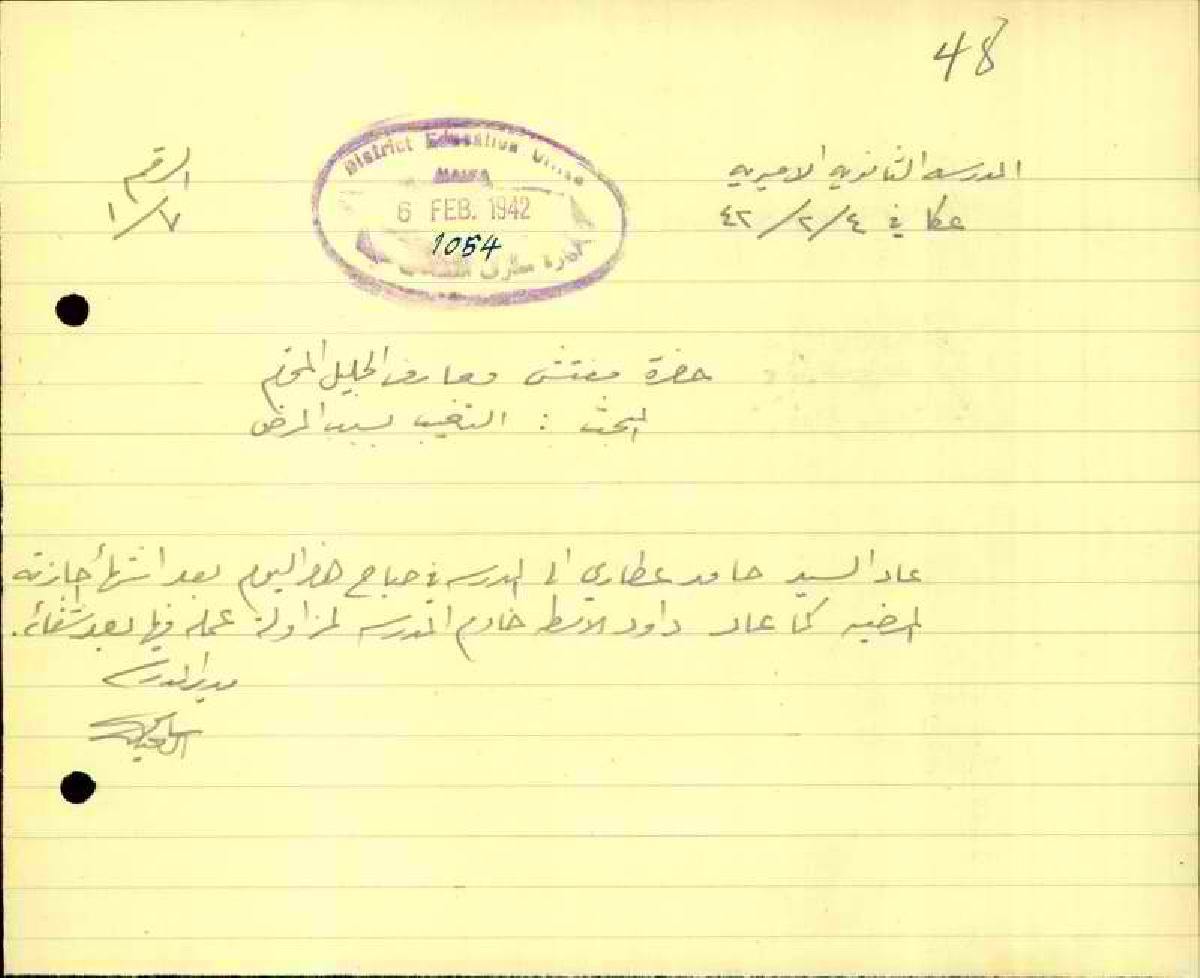 48
المدرسه الثانويه الاميريه
عكا في ٤/٢/٤٢
الرقم
١/٧
District Education Office
HAIFA
6 FEB. 1942
1054
ادارة معارف
حضرة مفتش معارف الجليل المحترم
المبحث : التغيب بسبب المرض
عاد السيد حامد عطاري الى المدرسه في صباح هذا اليوم بعد انتهاء اجازته
المرضيه كما عاد داود خادم المدرسه لمزاولة عمله فيها بعد شفائه.
مدير المدرسه